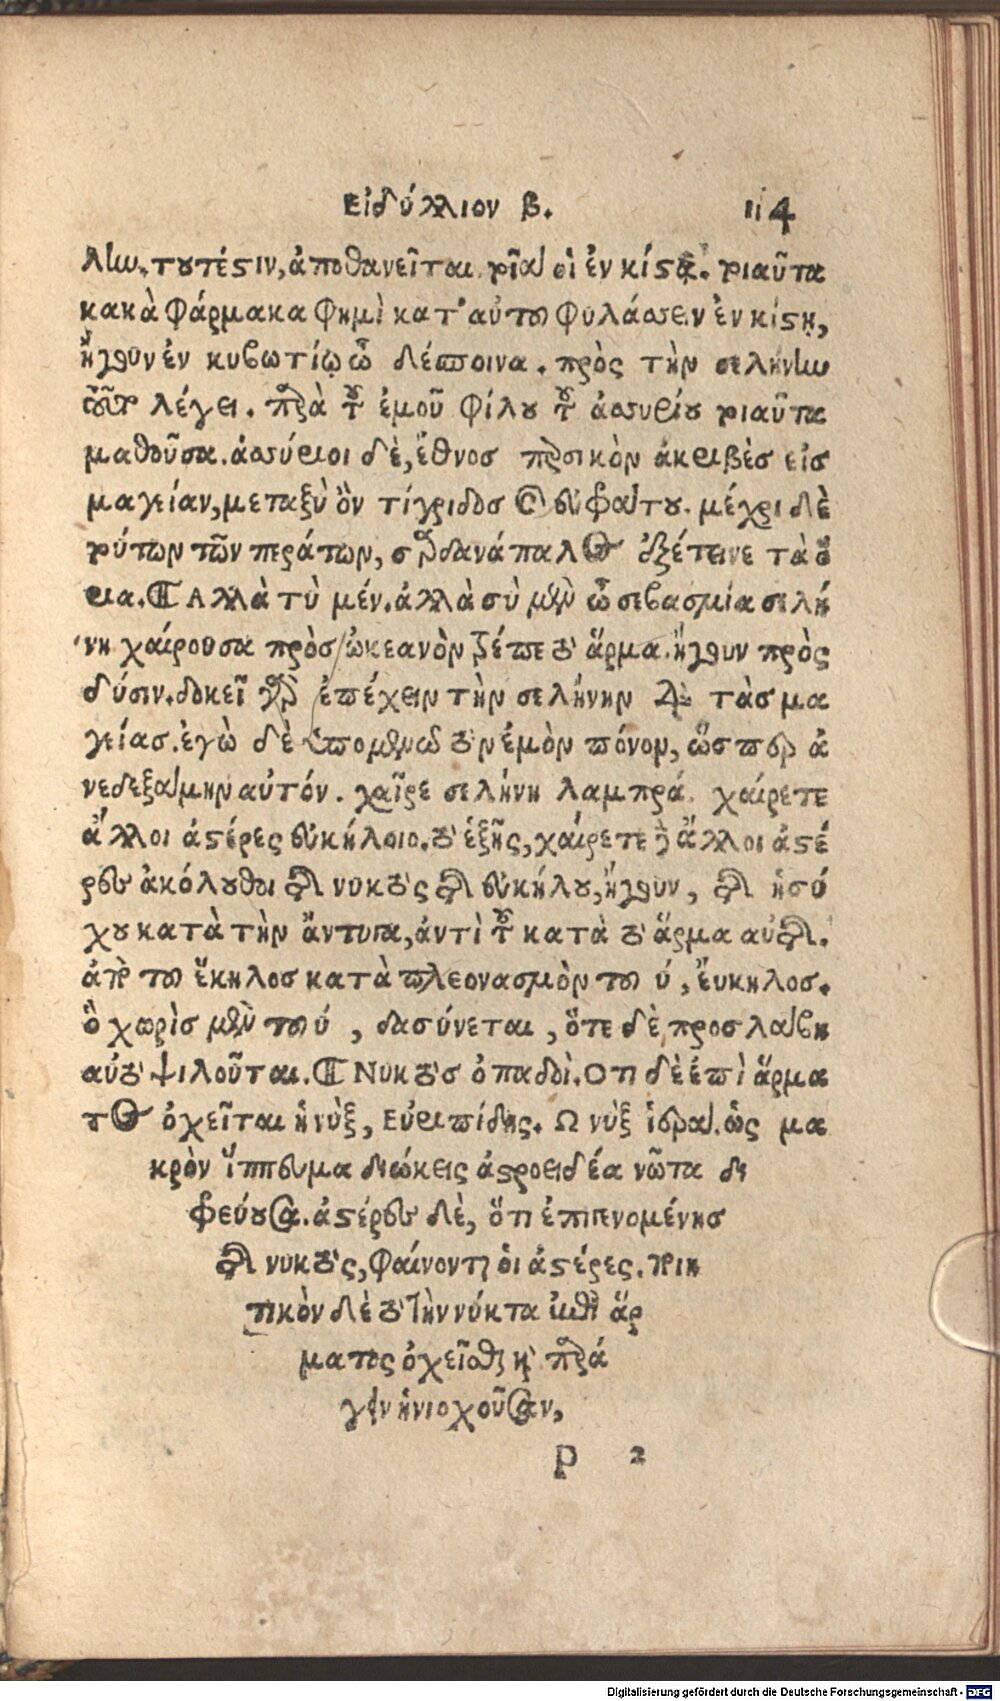 Εἰδύλλιον β. 114
λίω, τουτέστιν, ἀποθανεῖται. τοῖά οἱ ἐν κίστᾳ. τοιαῦτα
κακὰ φάρμακα φημὶ κατ' αὐτοῦ φυλάσσειν ἐν κίστῃ,
ἤγουν ἐν κιβωτίῳ ὦ δέσποινα. πρὸς τὴν σελήνην
λέγει. παρὰ τοῦ ἐμοῦ φίλου τοῦ ἀσσυρίου τοιαῦτα
μαθοῦσα. ἀσσύριοι δὲ, ἔθνος περσικὸν ἀκριβὲς εἰς
μαγείαν, μεταξὺ ὂν τίγριδος καὶ εὐφράτου. μέχρι δὲ
τούτων τῶν περάτων, σαρδανάπαλος ἐξέτεινε τὰ ὅ
ρια. ¶ Αλλὰ τὺ μέν. ἀλλὰ σὺ μὲν ὦ σεβασμία σελή
νη χαίρουσα πρὸς ὠκεανὸν τρέπε τὸ ἅρμα. ἤγουν πρὸς
δύσιν. δοκεῖ γὰρ ἐπέχειν τὴν σελήνην διὰ τὰς μα
γείας. ἐγὼ δὲ ὑπομενῶ τὸν ἐμὸν πόνον, ὥσπερ ἀ
νεδεξάμην αὐτόν. χαῖρε σελήνη λαμπρά. χαίρετε
ἄλλοι ἀστέρες εὐκήλοιο. τὸ ἑξῆς, χαίρετε καὶ ἄλλοι ἀστέ
ρες ἀκόλουθοι τῆς νυκτὸς τῆς εὐκήλου, ἤγουν, τῆς ἡσύ
χου κατὰ τὴν ἄντυγα, ἀντὶ τοῦ κατὰ τὸ ἅρμα αὐτῆς.
ἀπὸ τοῦ ἕκηλος κατὰ πλεονασμὸν τοῦ ύ, ἔυκηλος.
ὃ χωρὶς μὲν τοῦ ύ, δασύνεται, ὅτε δὲ προσλάβη
αὐτὸ ψιλοῦται. ¶ Νυκτὸς ὀπαδοὶ. Οτι δὲ ἐπὶ ἅρμα
τος ὀχεῖται ἡ νὺξ, Εὐριπίδης. Ω νὺξ ἱερά. ὡς μα
κρὸν ἵππευμα διώκεις ἀστροειδέα νῶτα δι
φρεύουσα. ἀστέρες δὲ, ὅτι ἐπιγενομένης
τῆς νυκτὸς, φαίνονται οἱ ἀστέρες. ποιη
τικὸν δὲ τὸ τὴν νύκτα ἐπὶ ἅρ
ματος ὀχεῖσθαι παρά
γειν ἡνιοχοῦσαν,
P 2